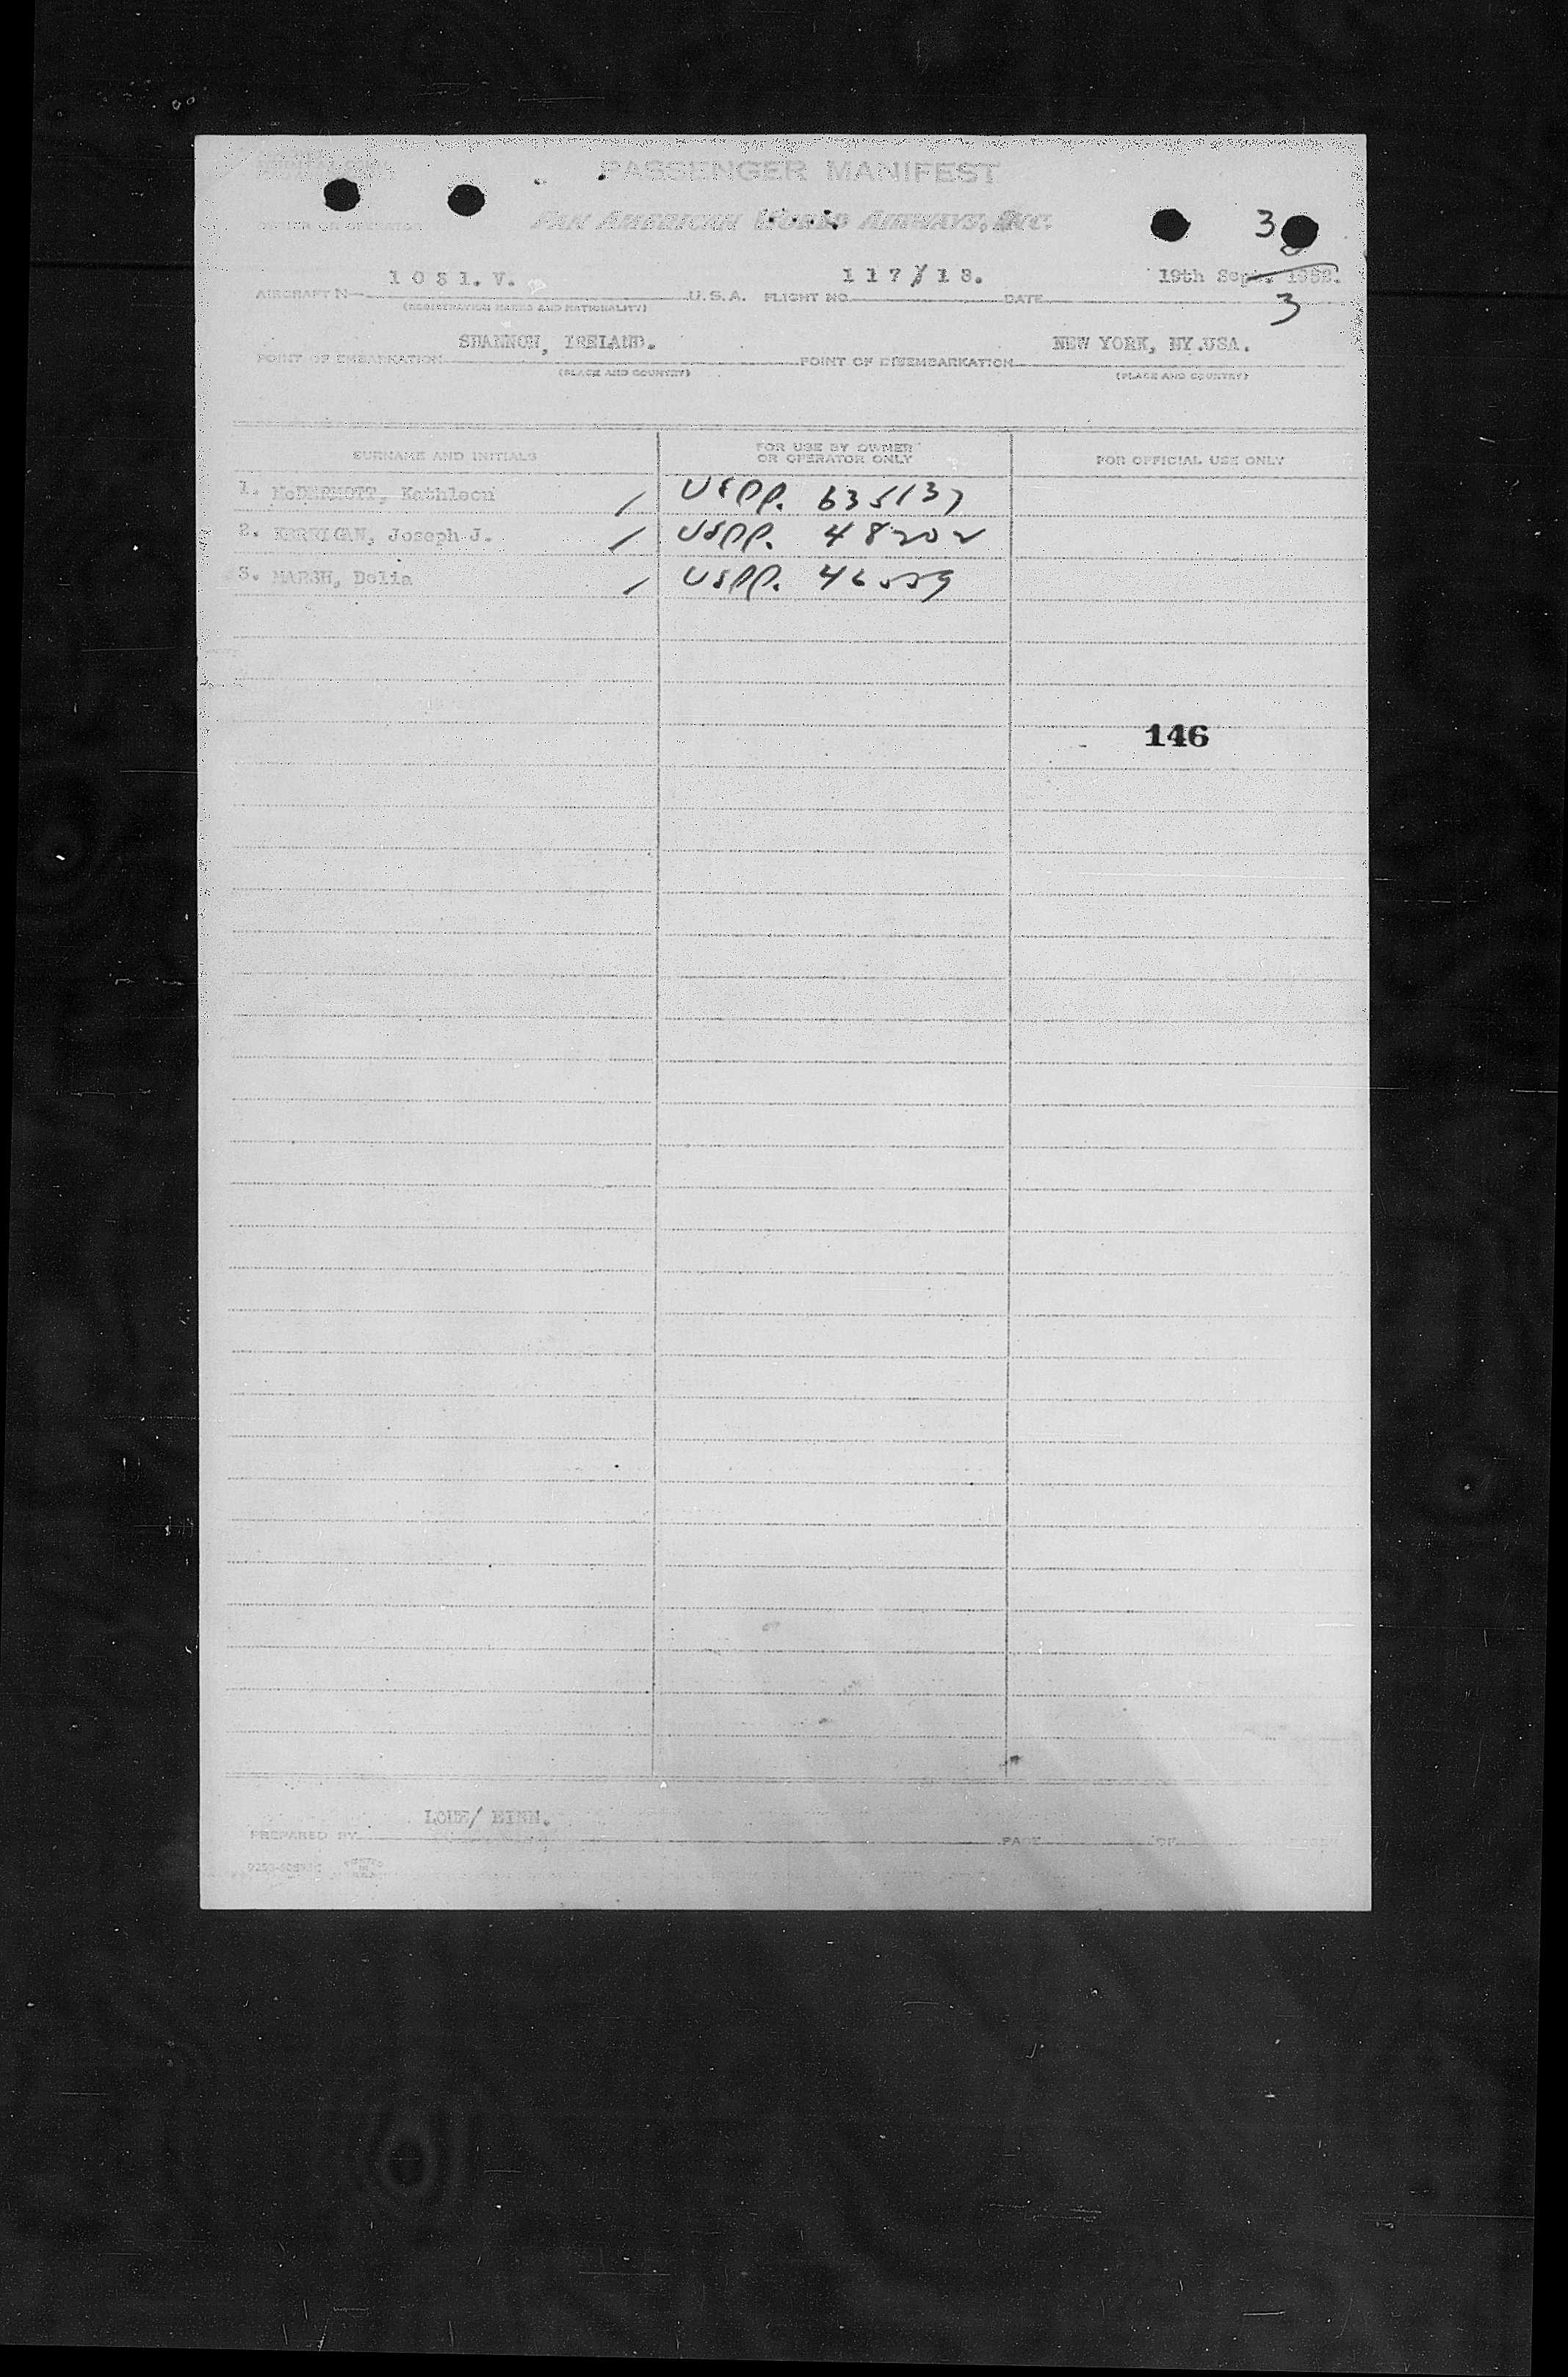 PASSENGER MANIFEST
OWNER OR OPERATOR PAN AMERICAN WORLD AIRWAYS, INC.
3
AIRCRAFT N 1031.V. U.S.A. FLIGHT NO. 117/18. DATE 19th Sept. 1952.
(REGISTRATION MARKS AND NATIONALITY)
3
POINT OF EMBARKATION SHANNON, IRELAND. POINT OF DISEMBARKATION NEW YORK, NY.USA.
(PLACE AND COUNTRY) (PLACE AND COUNTRY)
SURNAME AND INITIALS FOR USE BY OWNER OR OPERATOR ONLY FOR OFFICIAL USE ONLY
1. McDERMOTT, Kathleen / USPP. 635137
2. KERRIGAN, Joseph J. / USPP. 48202
3. MARSH, Delia / USPP.
146
PREPARED BY PAGE OF